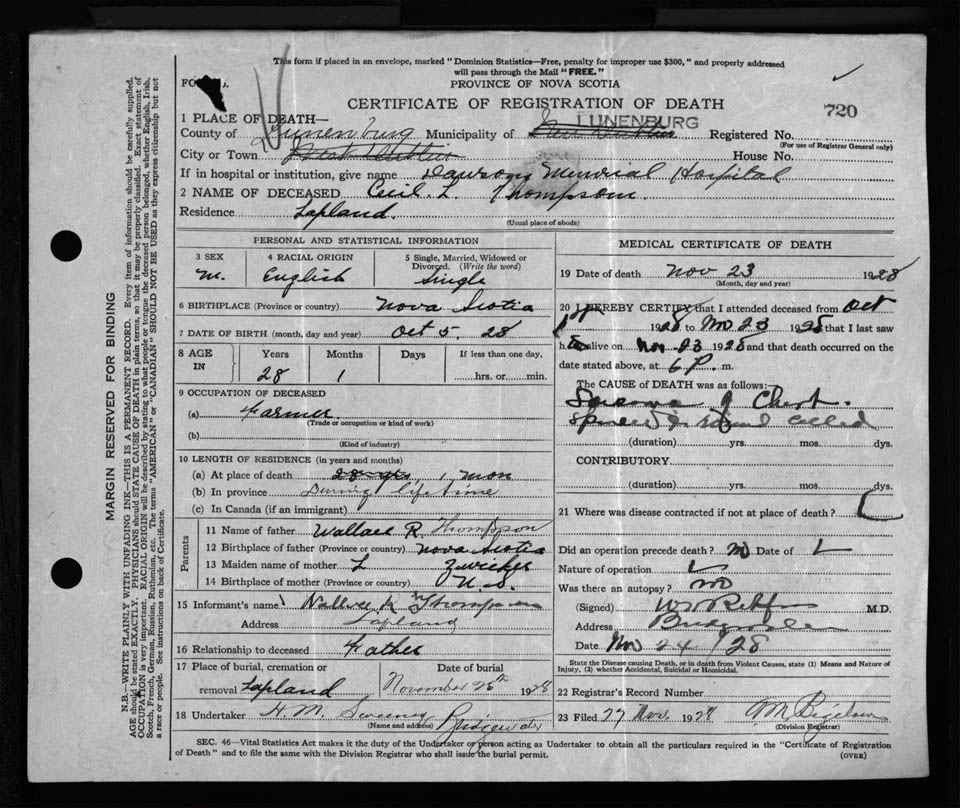 This form if placed in an envelope, marked "Dominion Statistics—Free, penalty for improper use $300," and properly addressed
will pass through the Mail "FREE."
PROVINCE OF NOVA SCOTIA
CERTIFICATE OF REGISTRATION OF DEATH
720
1 PLACE OF DEATH—
LUNENBURG
County of Lunenburg Municipality of New Dublin Registered No.
(For use of Registrar General only)
City or Town West Dublin House No.
If in hospital or institution, give name Dawson Memorial Hospital
2 NAME OF DECEASED Cecil L. Thompson.
Residence Lapland.
(Usual place of abode)
PERSONAL AND STATISTICAL INFORMATION
3 SEX 4 RACIAL ORIGIN 5 Single, Married, Widowed or
Divorced. (Write the word)
M. English Single
6 BIRTHPLACE (Province or country) Nova Scotia
7 DATE OF BIRTH (month, day and year) Oct 5. 28
8 AGE IN Years Months Days If less than one day,
28 1 hrs. or min.
9 OCCUPATION OF DECEASED
(a) Farmer.
(Trade or occupation or kind of work)
(b)
(Kind of industry)
10 LENGTH OF RESIDENCE (in years and months)
(a) At place of death 28 yrs, 1 mon
(b) In province During life time
(c) In Canada (if an immigrant)
Parents
11 Name of father Wallace R. Thompson
12 Birthplace of father (Province or country) Nova Scotia
13 Maiden name of mother L Zwicker
14 Birthplace of mother (Province or country) N. S.
15 Informant's name Wallace R Thompson
Address Lapland
16 Relationship to deceased Father
17 Place of burial, cremation or Date of burial
removal Lapland November 25th 1928
18 Undertaker H. M. Bridgewater
(Name and address)
MEDICAL CERTIFICATE OF DEATH
19 Date of death Nov 23 1928
(Month, day and year)
20 I HEREBY CERTIFY that I attended deceased from Oct
1st 1928 to Nov 23 1928 that I last saw
h alive on Nov. 23 1928 and that death occurred on the
date stated above, at 6 P. m.
The CAUSE of DEATH was as follows:
Sarcoma of Chest.
(duration) yrs. mos. dys.
CONTRIBUTORY
(duration) yrs. mos. dys
21 Where was disease contracted if not at place of death?
Did an operation precede death? no Date of
Nature of operation
Was there an autopsy? no
(Signed) M.D.
Address Bridgewater
Date Nov 24/28
State the Disease causing Death, or in death from Violent Causes, state (1) Means and Nature of
Injury, (2) whether Accidental, Suicidal or Homicidal.
22 Registrar's Record Number
23 Filed 27 Nov. 1928
(Division Registrar)
SEC. 46—Vital Statistics Act makes it the duty of the Undertaker or person acting as Undertaker to obtain all the particulars required in the "Certificate of Registration
of Death" and to file the same with the Division Registrar who shall issue the burial permit.
(OVER)
MARGIN RESERVED FOR BINDING
N.B.—WRITE PLAINLY WITH UNFADING INK—THIS IS A PERMANENT RECORD. Every item of information should be carefully supplied.
AGE should be stated EXACTLY. PHYSICIANS should STATE CAUSE OF DEATH in plain terms, so that it may be properly classified. Exact statement of
OCCUPATION is very important. RACIAL ORIGIN will be described by stating to what people or tongue the deceased person belonged, whether English, Irish,
Scotch, French, German, Russian, Ruthenian, etc. The terms "AMERICAN" or "CANADIAN" SHOULD NOT BE USED as they express citizenship but not
a race or people. See instructions on back of Certificate.